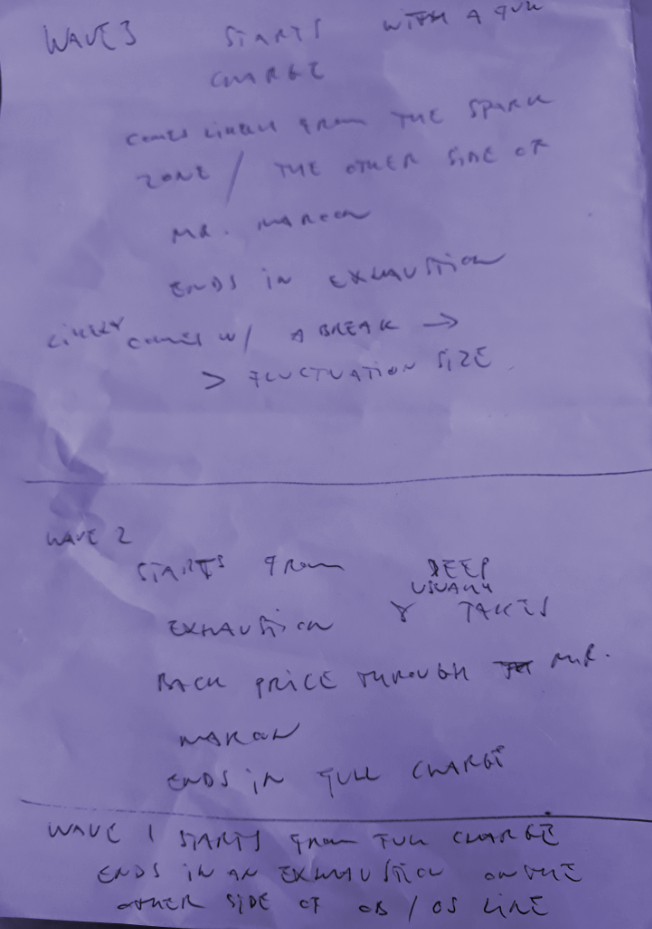 WAVE 3 STARTS WITH A FULL
CHARGE
COMES LIKELY FROM THE SPARK
ZONE / THE OTHER SIDE OF
MR. MAROON
ENDS IN EXHAUSTION
LIKELY COMES W/ A BREAK →
> FLUCTUATION SIZE
WAVE 2
STARTS FROM DEEP
USUALLY
EXHAUSTION & TAKES
BACK PRICE THROUGH MR.
MAROON
ENDS IN FULL CHARGE
WAVE 1 STARTS FROM FULL CHARGE
ENDS IN AN EXHAUSTION ON THE
OTHER SIDE OF OB / OS LINE